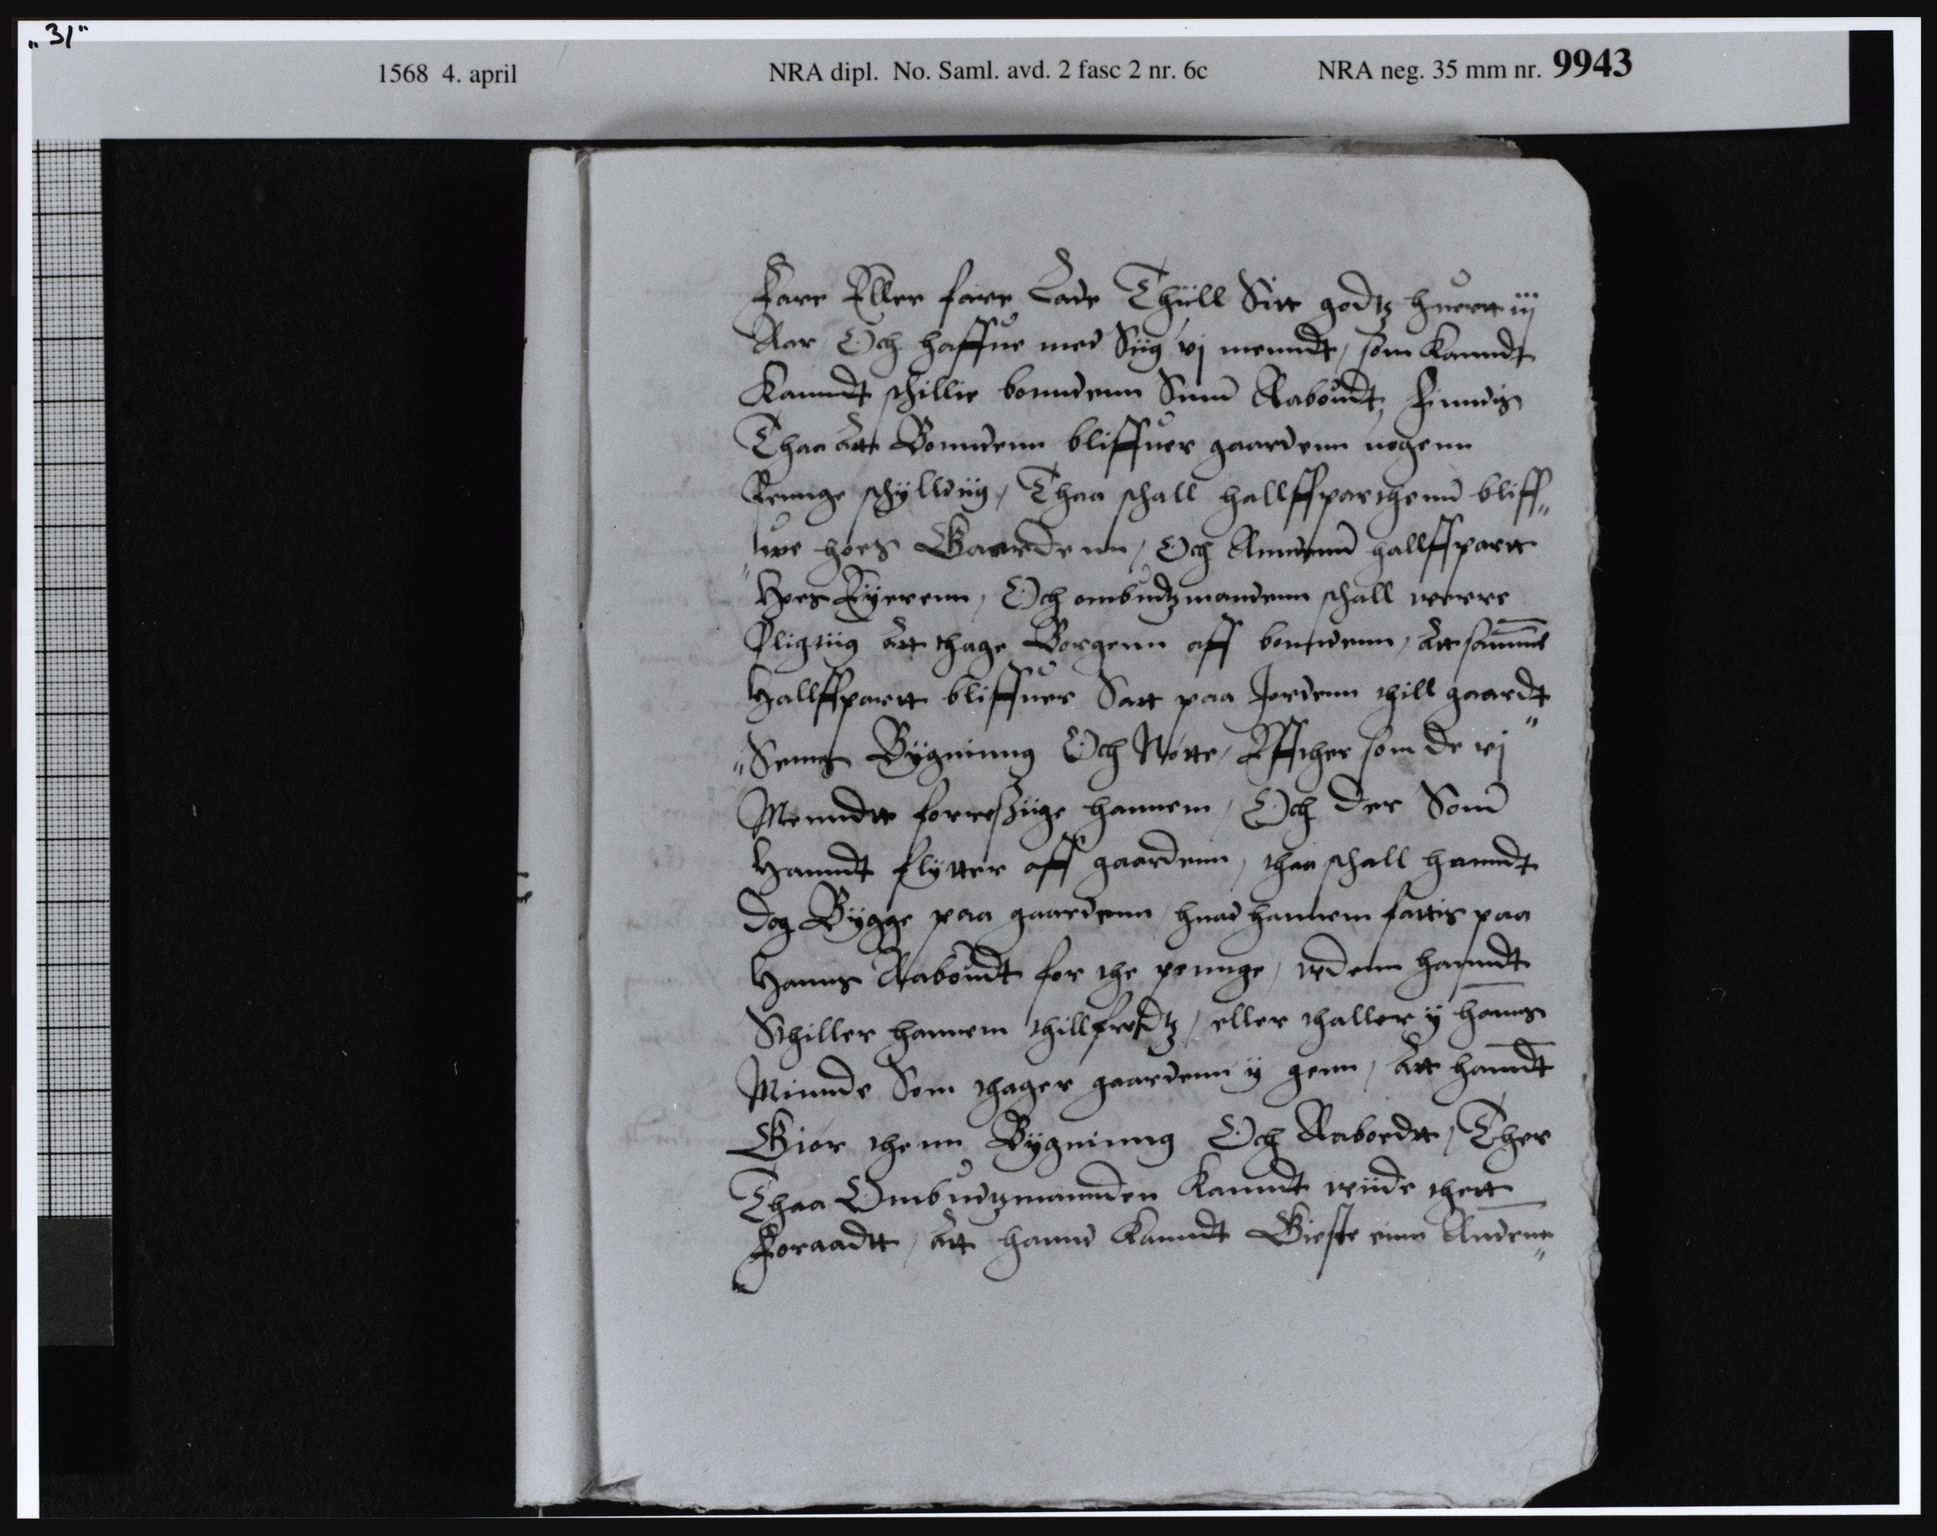 „31“
1568 4. april NRA dipl. No. Saml. avd. 2 fasc 2 nr. 6c NRA neg. 35 mm nr. 9943
Fare Eller fare Lade Thiill Sitt godtz huertt iij
Aar Och haffue med Siig vj menndt, som Kanndt
Kanndt schillie bonndenn Sinn Aaboudt, Finndis
Thaa Att Bonndenn bliffuer gaardenn nogenn
Penge schylldiig, Thaa schall hallffparthenn bliff„
„we hoes Gaardenn, Och Anndenn hallffpartt
Hoes Eyerenn, Och ombudtzmandenn schall werre
Pligtiig Att thage Borgenn aff bonndenn, Att samme
Hallffpartt bliffuer Satt paa Jordenn thill gaardt„
„Sens Bygninng Och Nøtte, Effther som de vj
Menndtt forreßiige hannem, Och der Som
Hanndt flytter aff gaardenn, thaa schall hanndt
Dog Bygge paa gaardenn, huad hannem fattis paa
Hanns Aaboudt for the pennge, vdenn hanndt
Sthiller hannem thillfredtz, eller thaller y hanns
Minnde Som thager gaardenn y genn, Att hanndt
Giør thenn Bygninng Och Aaboedtt, Ther
Thaa Ombudtzmannden Kanndt wiide thett
Foraadtt, Att hannd Kanndt Gieste einn Andenn„